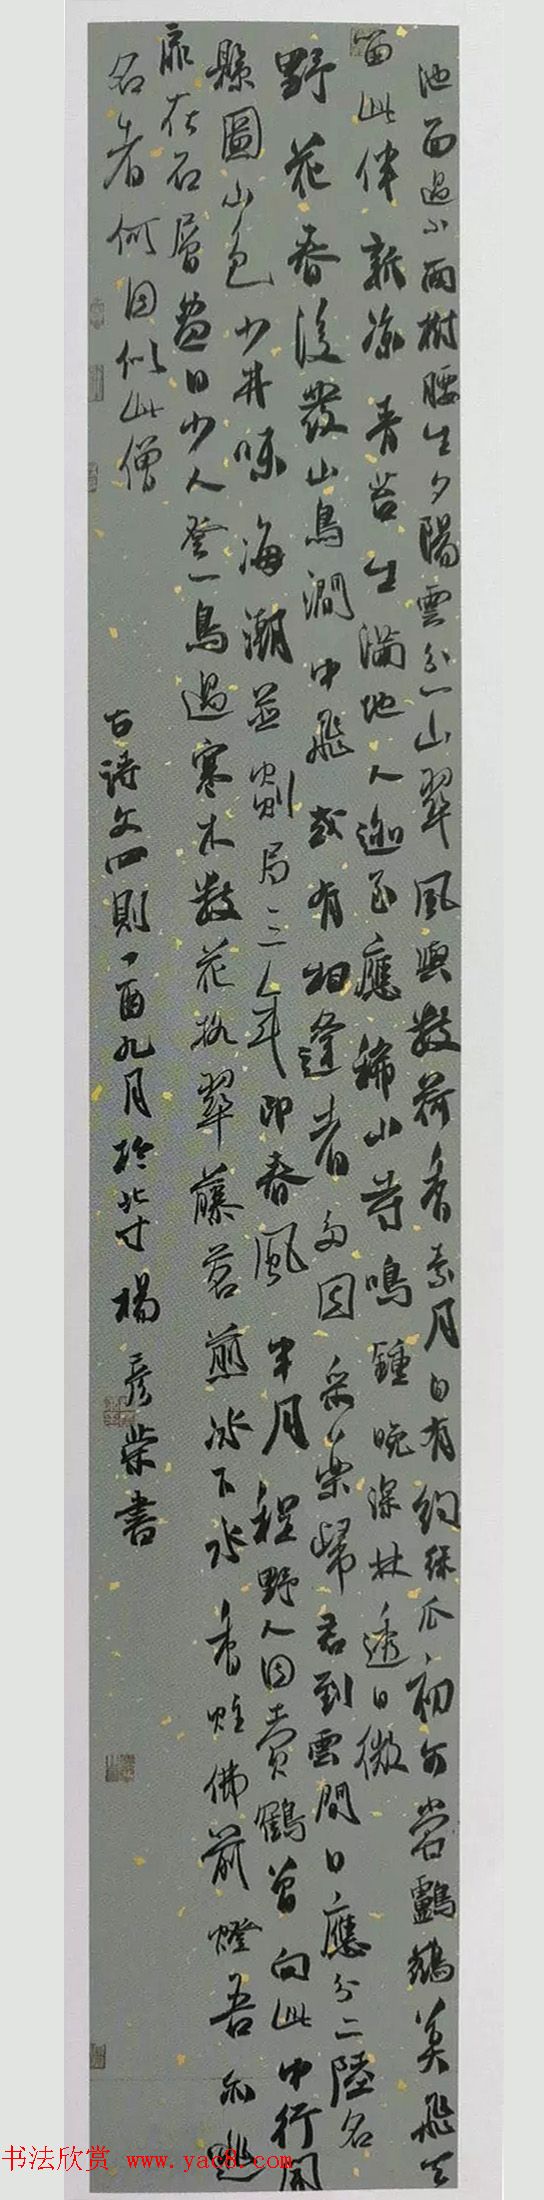 池面過小雨樹腰生夕陽雲分一山翠風與數荷香素月自有約綠瓜初可嘗鸕鶿莫飛去
留此伴新涼青苔生滿地人迹至應稀山寺鳴鐘晚深林透日微
野花春後發山鳥澗中飛或有相逢者多因采藥歸君到雲間日應分二陸名
縣圖山色少井味海潮並則局三年印春風半月程野人因賣鶴曾向此中行開
扉在石層盡日少人登一鳥過寒木數花搖翠藤茗煎冰下水香炷佛前燈吾亦逃
名者何因似此僧
古詩文四則丁酉九月於北寸楊彥榮書
书法欣赏 www.yac8.com